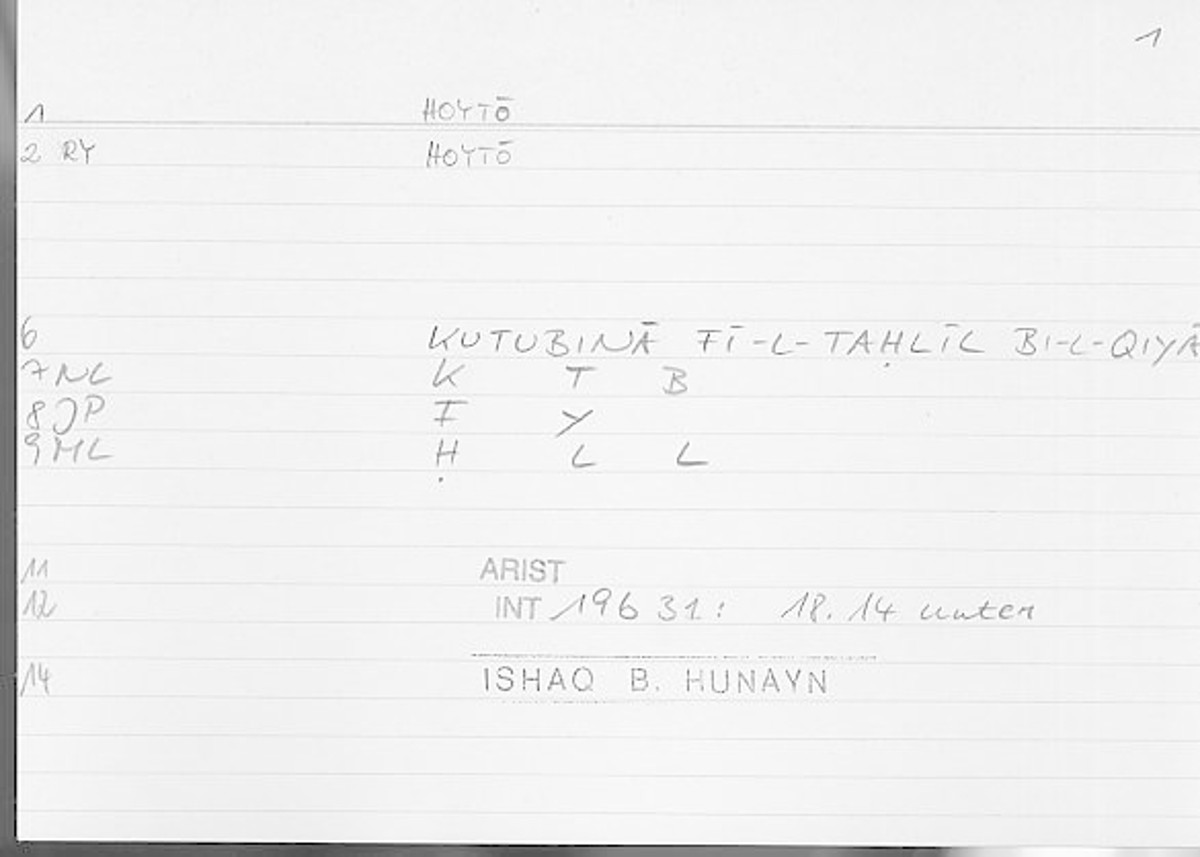 1
1 HOYTŌ
2 RY HOYTŌ
6 KUTUBINĀ FĪ-L-TAḤLĪL BI-L-QIYĀ
7 NL K T B
8 JP F Y
9 ML Ḥ L L
11 ARIST
12 INT 196 31: 18.14 unter
14 ISHAQ B. HUNAYN